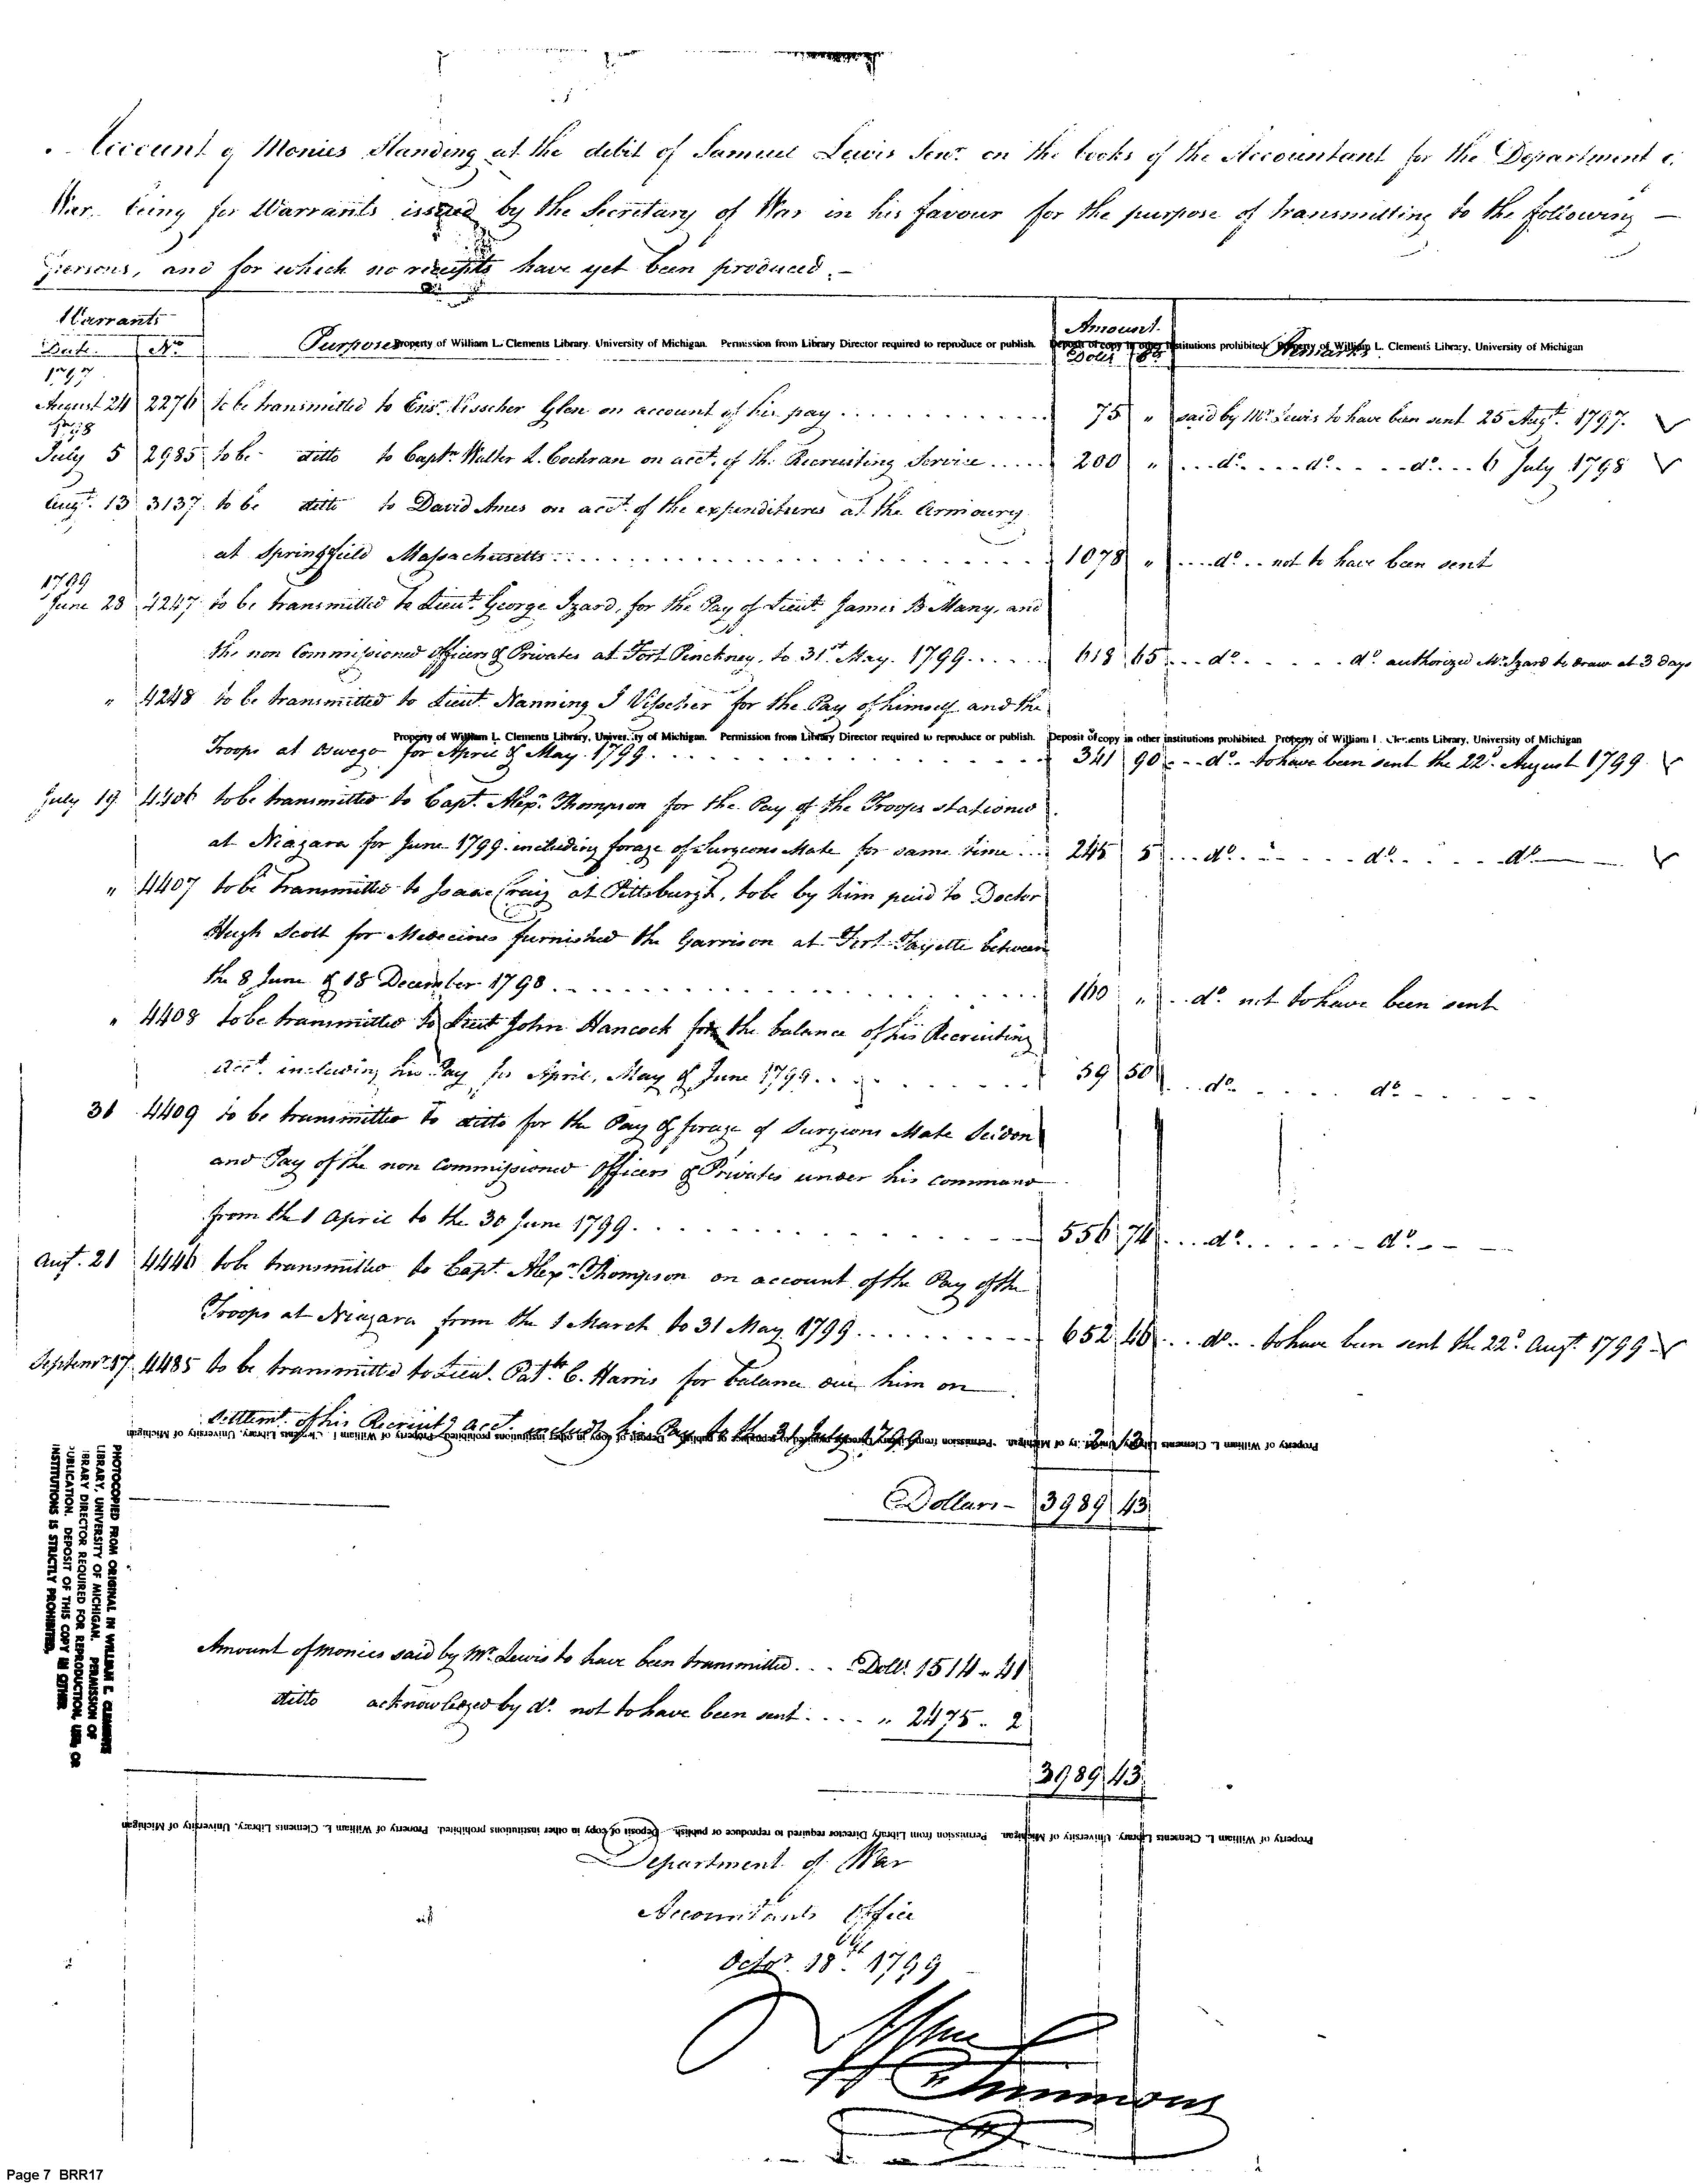 Account of Monies Standing at the debit of Samuel Lewis Senr. on the books of the Accountant for the Department of
War, being for Warrants issued by the Secretary of War in his favour for the purpose of transmitting to the following —
persons, and for which no receipts have yet been produced. —
Warrants
Date. No. Purposes Amount. Dolls Remarks
Property of William L. Clements Library. University of Michigan. Permission from Library Director required to reproduce or publish. Deposit of copy in other institutions prohibited. Property of William L. Clements Library, University of Michigan
1797
August 24 2276 to be transmitted to Ensn. Visscher Glen on account of his pay .......... 75 " said by Mr. Lewis to have been sent 25 Augt. 1797.
1798
July 5 2985 to be ditto to Captn. Walter L. Cochran on acct. of the Recruiting Service ..... 200 " ... do .... do .... do ... 6 July 1798
Augt. 13 3137 to be ditto to David Ames on acct. of the expenditures at the Armoury
at Springfield Massachusetts .......... 1078 " .... do ... not to have been sent
1799
June 28 4247 to be transmitted to Lieut. George Izard, for the Pay of Lieut. James B Many, and
the non Commissioned Officers & Privates at Fort Pinckney, to 31st. May. 1799 ..... 618 65 ... do ..... do. authorized Mr. Izard to draw at 3 days
" 4248 to be transmitted to Lieut. Nanning J Visscher for the Pay of himself and the
Property of William L. Clements Library, University of Michigan. Permission from Library Director required to reproduce or publish. Deposit of copy in other institutions prohibited. Property of William L. Clements Library, University of Michigan
Troops at Oswego for April & May. 1799 .......... 341 90 ... do .. to have been sent the 22d. August 1799
July 19 4406 to be transmitted to Capt. Alexr. Thompson for the Pay of the Troops stationed
at Niagara for June 1799. including forage of Surgeons Mate for same time ... 245 5 ... do ..... do ..... do —
" 4407 to be transmitted to Isaac Craig at Pittsburgh, to be by him paid to Doctor
Hugh Scott for Medecines furnished the Garrison at Fort Fayette between
the 8 June & 18 December 1798 .......... 160 " ... do. not to have been sent
" 4408 to be transmitted to Lieut John Hancock for the balance of his Recruiting
acct. including his Pay for April, May & June 1799 .......... 59 50 ... do ..... do .....
31 4409 to be transmitted to ditto for the Pay & forage of Surgeons Mate Seidon
and Pay of the non Commissioned Officers & Privates under his command
from the 1 April to the 30 June 1799 .......... 556 74 ... do ...... do. — —
Augt. 21 4446 to be transmitted to Capt. Alexr. Thompson on account of the Pay of the
Troops at Niagara from the 1 March to 31 May 1799 ......... 652 46 ... do .. to have been sent the 22d. Augt. 1799
Septemr. 17 4485 to be transmitted to Lieut. Patk. C. Harris for balance due him on
settlemt. of his Recruitg acct. includg his Pay to the 31 July 1799 2 13
Property of William L. Clements Library, University of Michigan. Permission from Library Director required to reproduce or publish. Deposit of copy in other institutions prohibited. Property of William L. Clements Library, University of Michigan
Dollars — 3989 43
PHOTOCOPIED FROM ORIGINAL IN WILLIAM L. CLEMENTS
LIBRARY, UNIVERSITY OF MICHIGAN. PERMISSION OF
LIBRARY DIRECTOR REQUIRED FOR REPRODUCTION, USE, OR
PUBLICATION. DEPOSIT OF THIS COPY IN OTHER
INSTITUTIONS IS STRICTLY PROHIBITED.
Amount of monies said by Mr. Lewis to have been transmitted ... Dolls. 1514 " 41
ditto acknowledged by do. not to have been sent .... " 2475 .. 2
3989 43
Property of William L. Clements Library. University of Michigan. Permission from Library Director required to reproduce or publish. Deposit of copy in other institutions prohibited. Property of William L. Clements Library, University of Michigan
Department of War
Accountants Office
Octor. 18th. 1799
Wm Simmons
Page 7 BRR17